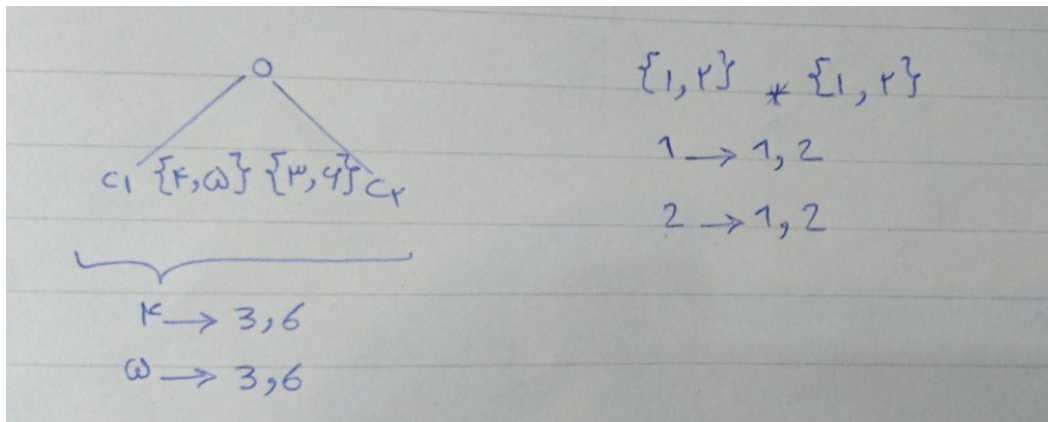 o
C۱ {۴,۵} {۳,۶} C۲
۴ → 3,6
۵ → 3,6
{۱,۲} * {۱,۲}
1 → 1,2
2 → 1,2